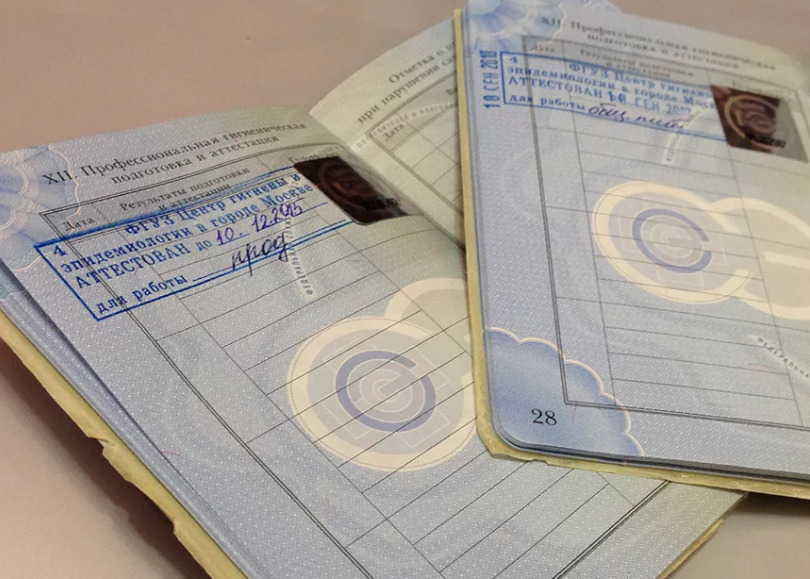 XII. Профессиональная гигиеническая
подготовка и аттестация
Дата
Результаты подготовки
и аттестации
4
ФГУЗ Центр гигиены и
эпидемиологии в городе Москве
АТТЕСТОВАН до 10. 12.2015
для работы прод
Отметка о
при нарушении
Дата
XII. Профессиональная гигиеническая
подготовка и аттестация
Дата
Результаты подготовки
4
ФГУЗ Центр гигиены
эпидемиологии в городе Москве
АТТЕСТОВАН
СЕН
для работы общ. пит.
10 СЕН
28